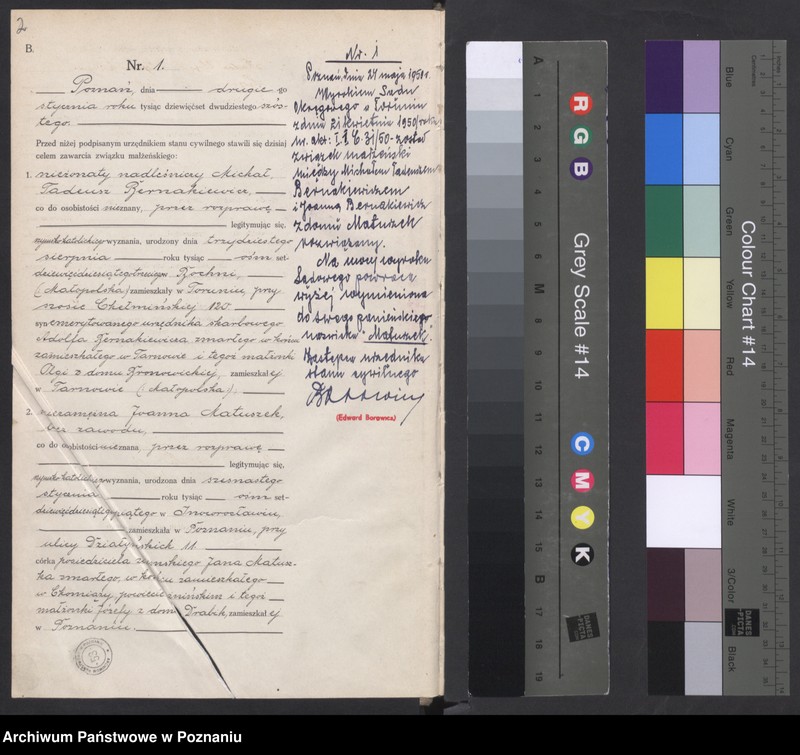 2
B.
Nr. 1.
Poznań, dnia drugiego
stycznia roku tysiąc dziewięćset dwudziestego szós-
tego.
Przed niżej podpisanym urzędnikiem stanu cywilnego stawili się dzisiaj
celem zawarcia związku małżeńskiego:
1. nieżonaty nadleśniczy Michał
Tadeusz Bernakiewicz,
co do osobistości nieznany, przez rozprawę
legitymując się,
rzymsko katolickiego wyznania, urodzony dnia trzydziestego
sierpnia roku tysiąc ośm set-
dziewięćdziesiątego w Bochni,
(Małopolska) zamieszkały w Toruniu, przy
szosie Chełmińskiej 120
syn emerytowanego urzędnika skarbowego
Adolfa Bernakiewicza zmarłego w końcu
zamieszkałego w Tarnowie i tegoż małżonki
Olgi z domu zamieszkałej
w Tarnowie (Małopolska).
2. niezamężna Joanna Matuszek,
bez zawodu,
co do osobistości nieznana, przez rozprawę
legitymując się,
rzymsko katolickiego wyznania, urodzona dnia szesnastego
stycznia roku tysiąc ośm set-
dziewięćdziesiątego piątego w Inowrocławiu,
zamieszkała w Poznaniu, przy
ulicy Działyńskich 11
córka posiedziciela ziemskiego Jana Matusz-
ka zmarłego, w końcu zamieszkałego
w Chomiąży, powiecie żnińskim i tegoż
małżonki Józefy z domu Dralik, zamieszkałej
w Poznaniu.
Nr. 1
Poznań, dnia 24 maja 1951 r.
Wyrokiem Sądu
Okręgowego w Toruniu
z dnia 21 kwietnia 1950 roku
nr. akt: I. 1. C. 31/50 został
związek małżeński
między Michałem Tadeuszem
Bernakiewiczem
i Joanną Bernakiewicz
z domu Matuszek
rozwiązany.
Na mocy wyroku
sądowego powraca
wyżej wymieniona
do swego panieńskiego
nazwiska "Matuszek".
Zastępca urzędnika
stanu cywilnego
(Edward Borowicz)
A 1 2 3 4 5 6 M 8 9 10 11 12 13 14 15 B 17 18 19
R
G
B
Grey Scale #14
C
M
Y
K
DANES
PICTA
Inches
Centimetres
Blue
Cyan
Green
Yellow
Red
Magenta
White
3/Color
Black
Colour Chart #14
DANES
PICTA
.COM
Archiwum Państwowe w Poznaniu